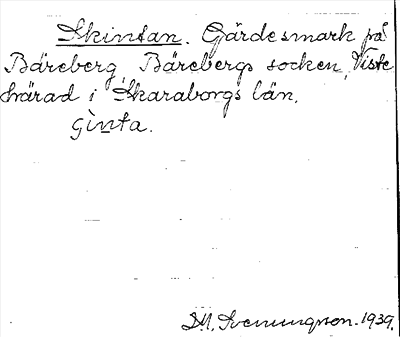 Skintan. Gärdesmark på
Bäreberg, Bärebergs socken, Viste
härad i Skaraborgs län.
gìnta.
D.M. Svenungsson. 1939.